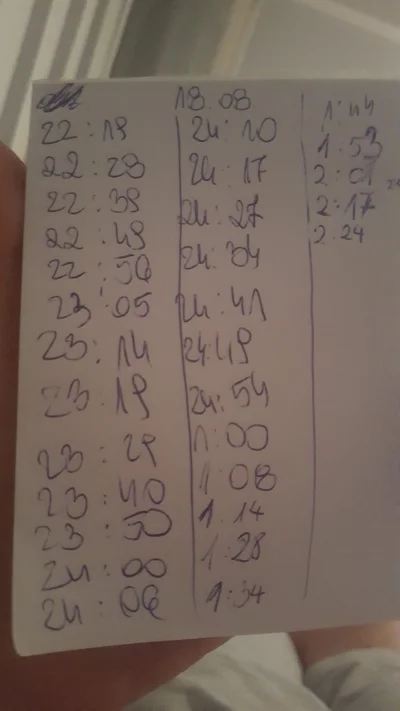 18.08
22:19
22:29
22:39
22:49
22:56
23:05
23:14
23:19
23:29
23:40
23:50
24:00
24:06
24:10
24:17
24:27
24:34
24:41
24:49
24:54
1:00
1:08
1.14
1:28
1:34
1:44
1:53
2:01
2:17
2.24